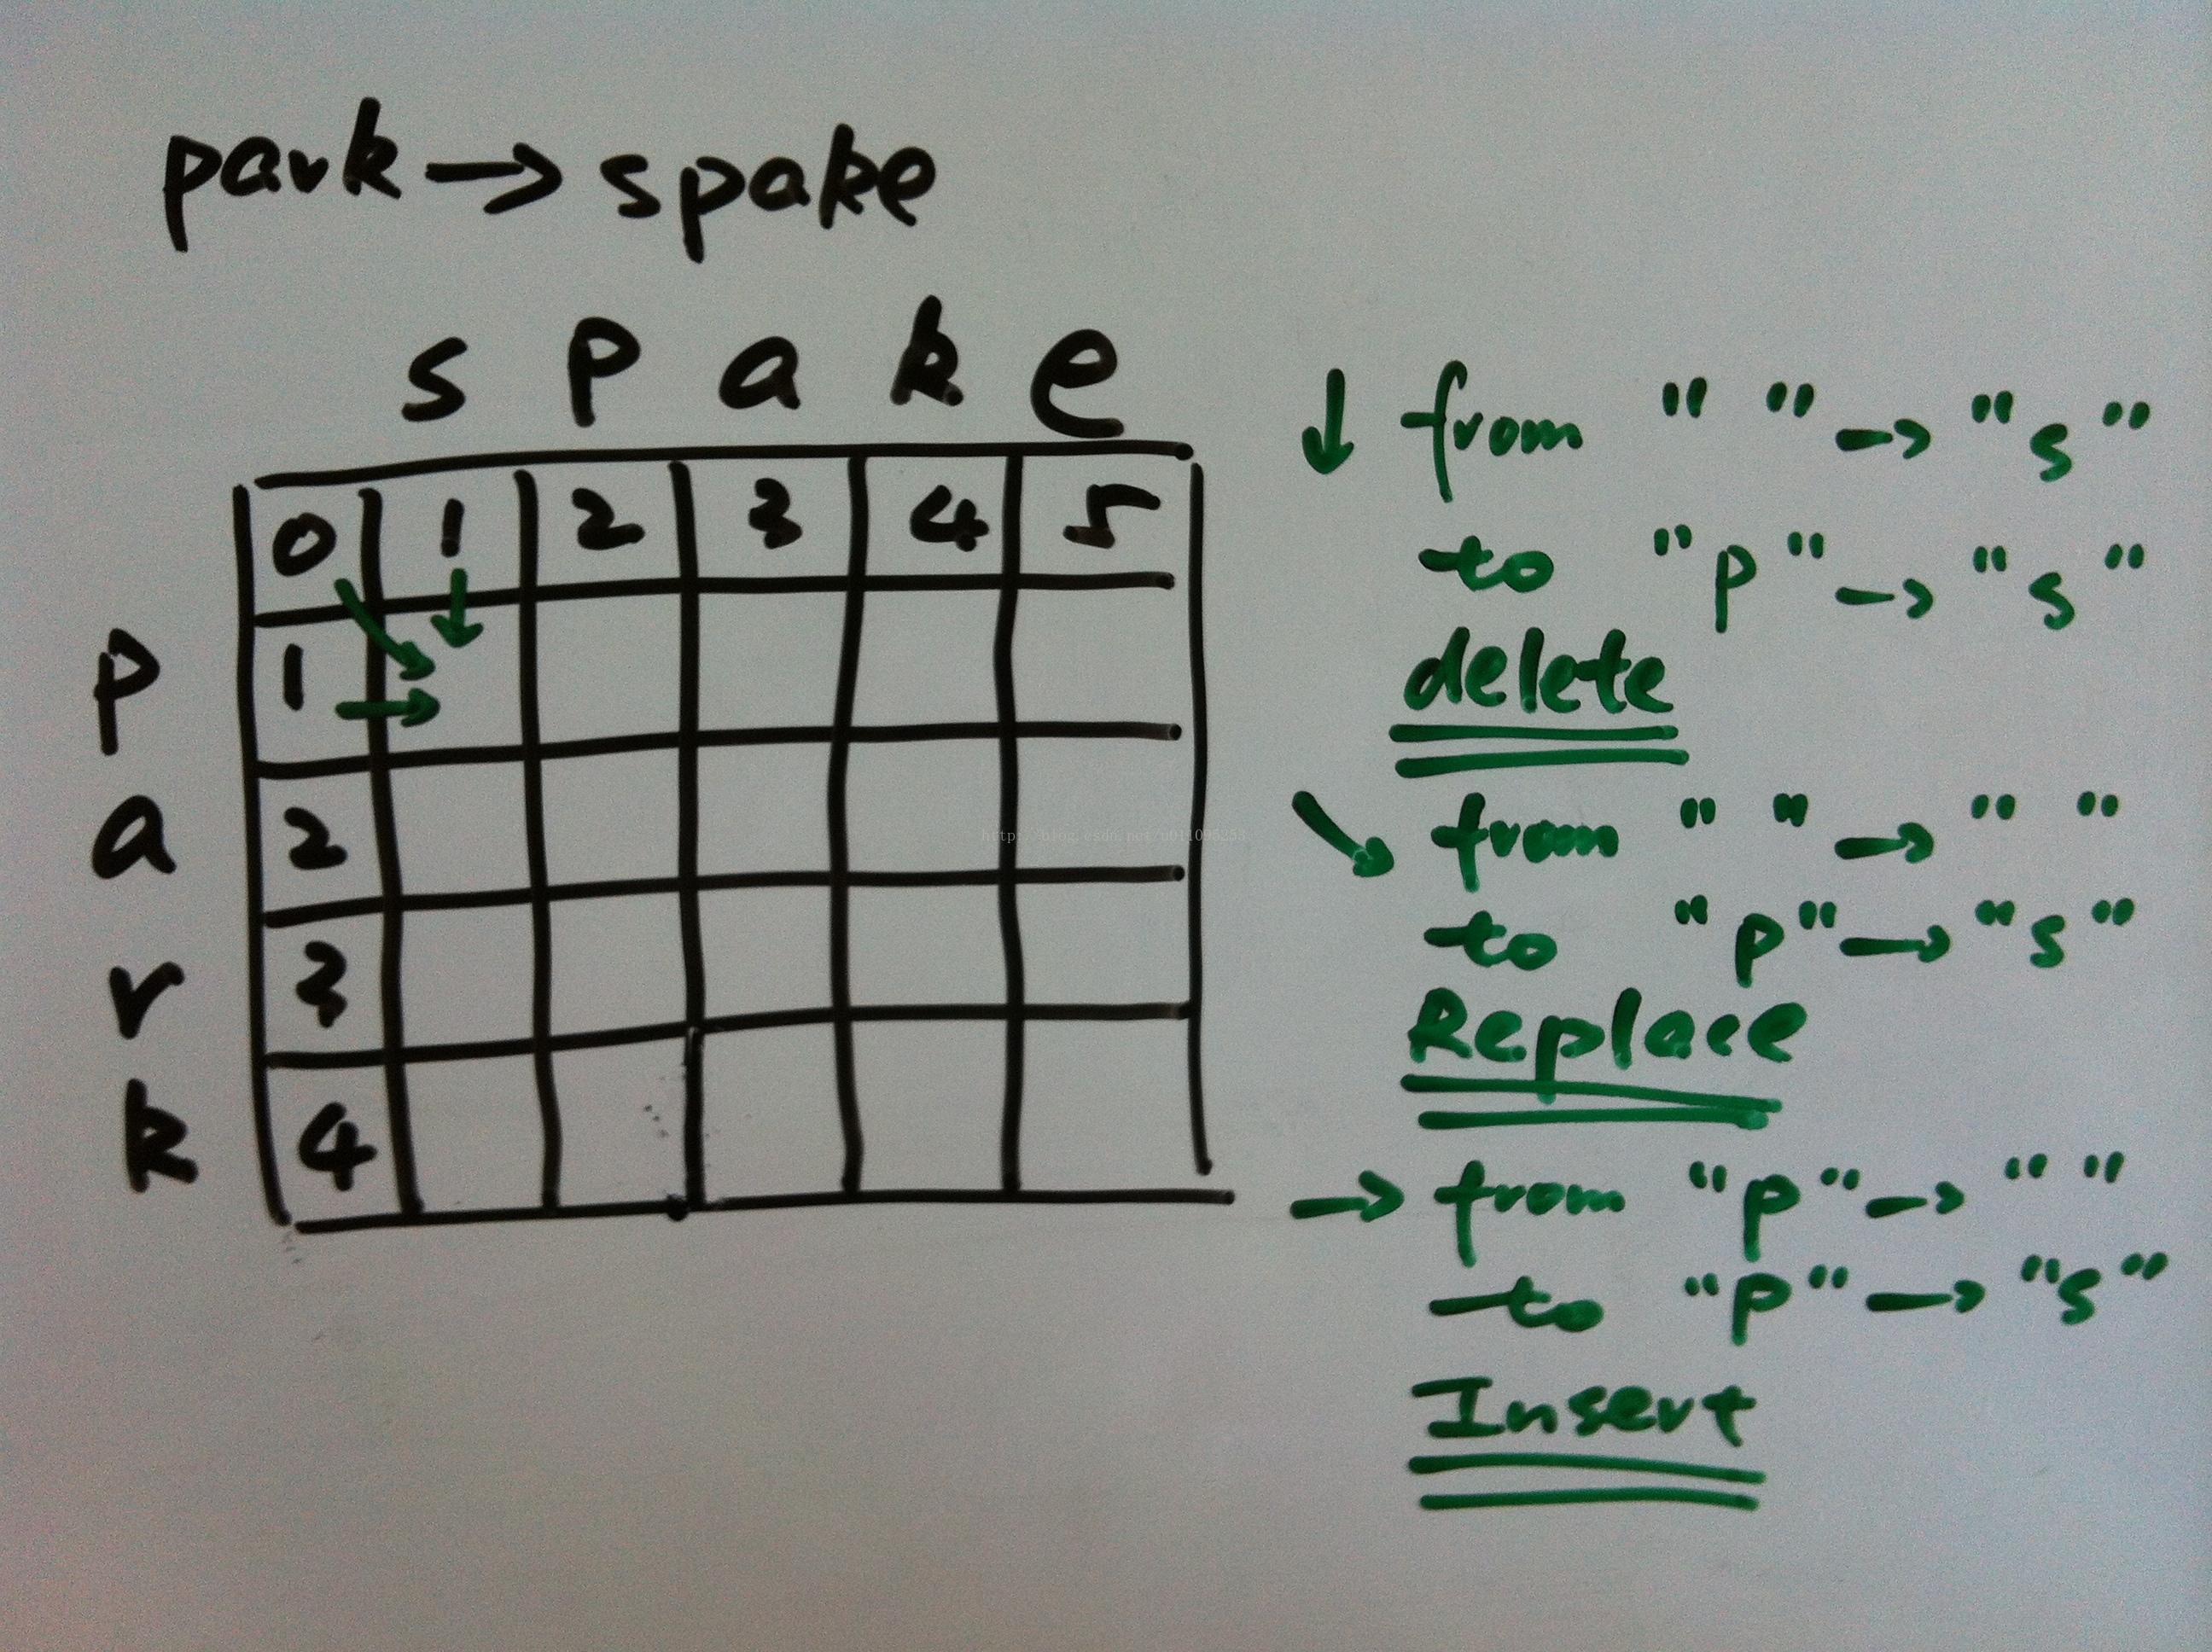 park → spake
s p a k e
0 1 2 3 4 5
p 1
a 2
r 3
k 4
↓ from " " → "s"
to "p" → "s"
delete
↘ from " " → " "
to "p" → "s"
Replace
→ from "p" → " "
to "p" → "s"
Insert